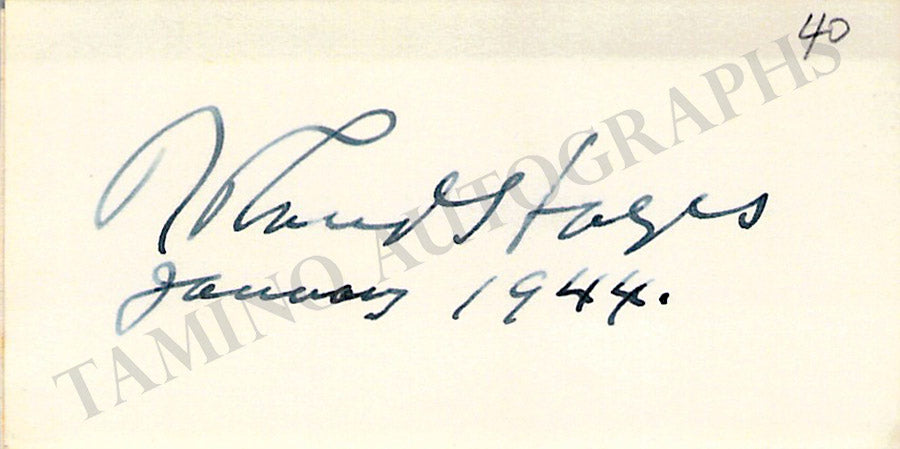 40
Roland Hayes
January 1944.
TAMINO AUTOGRAPHS